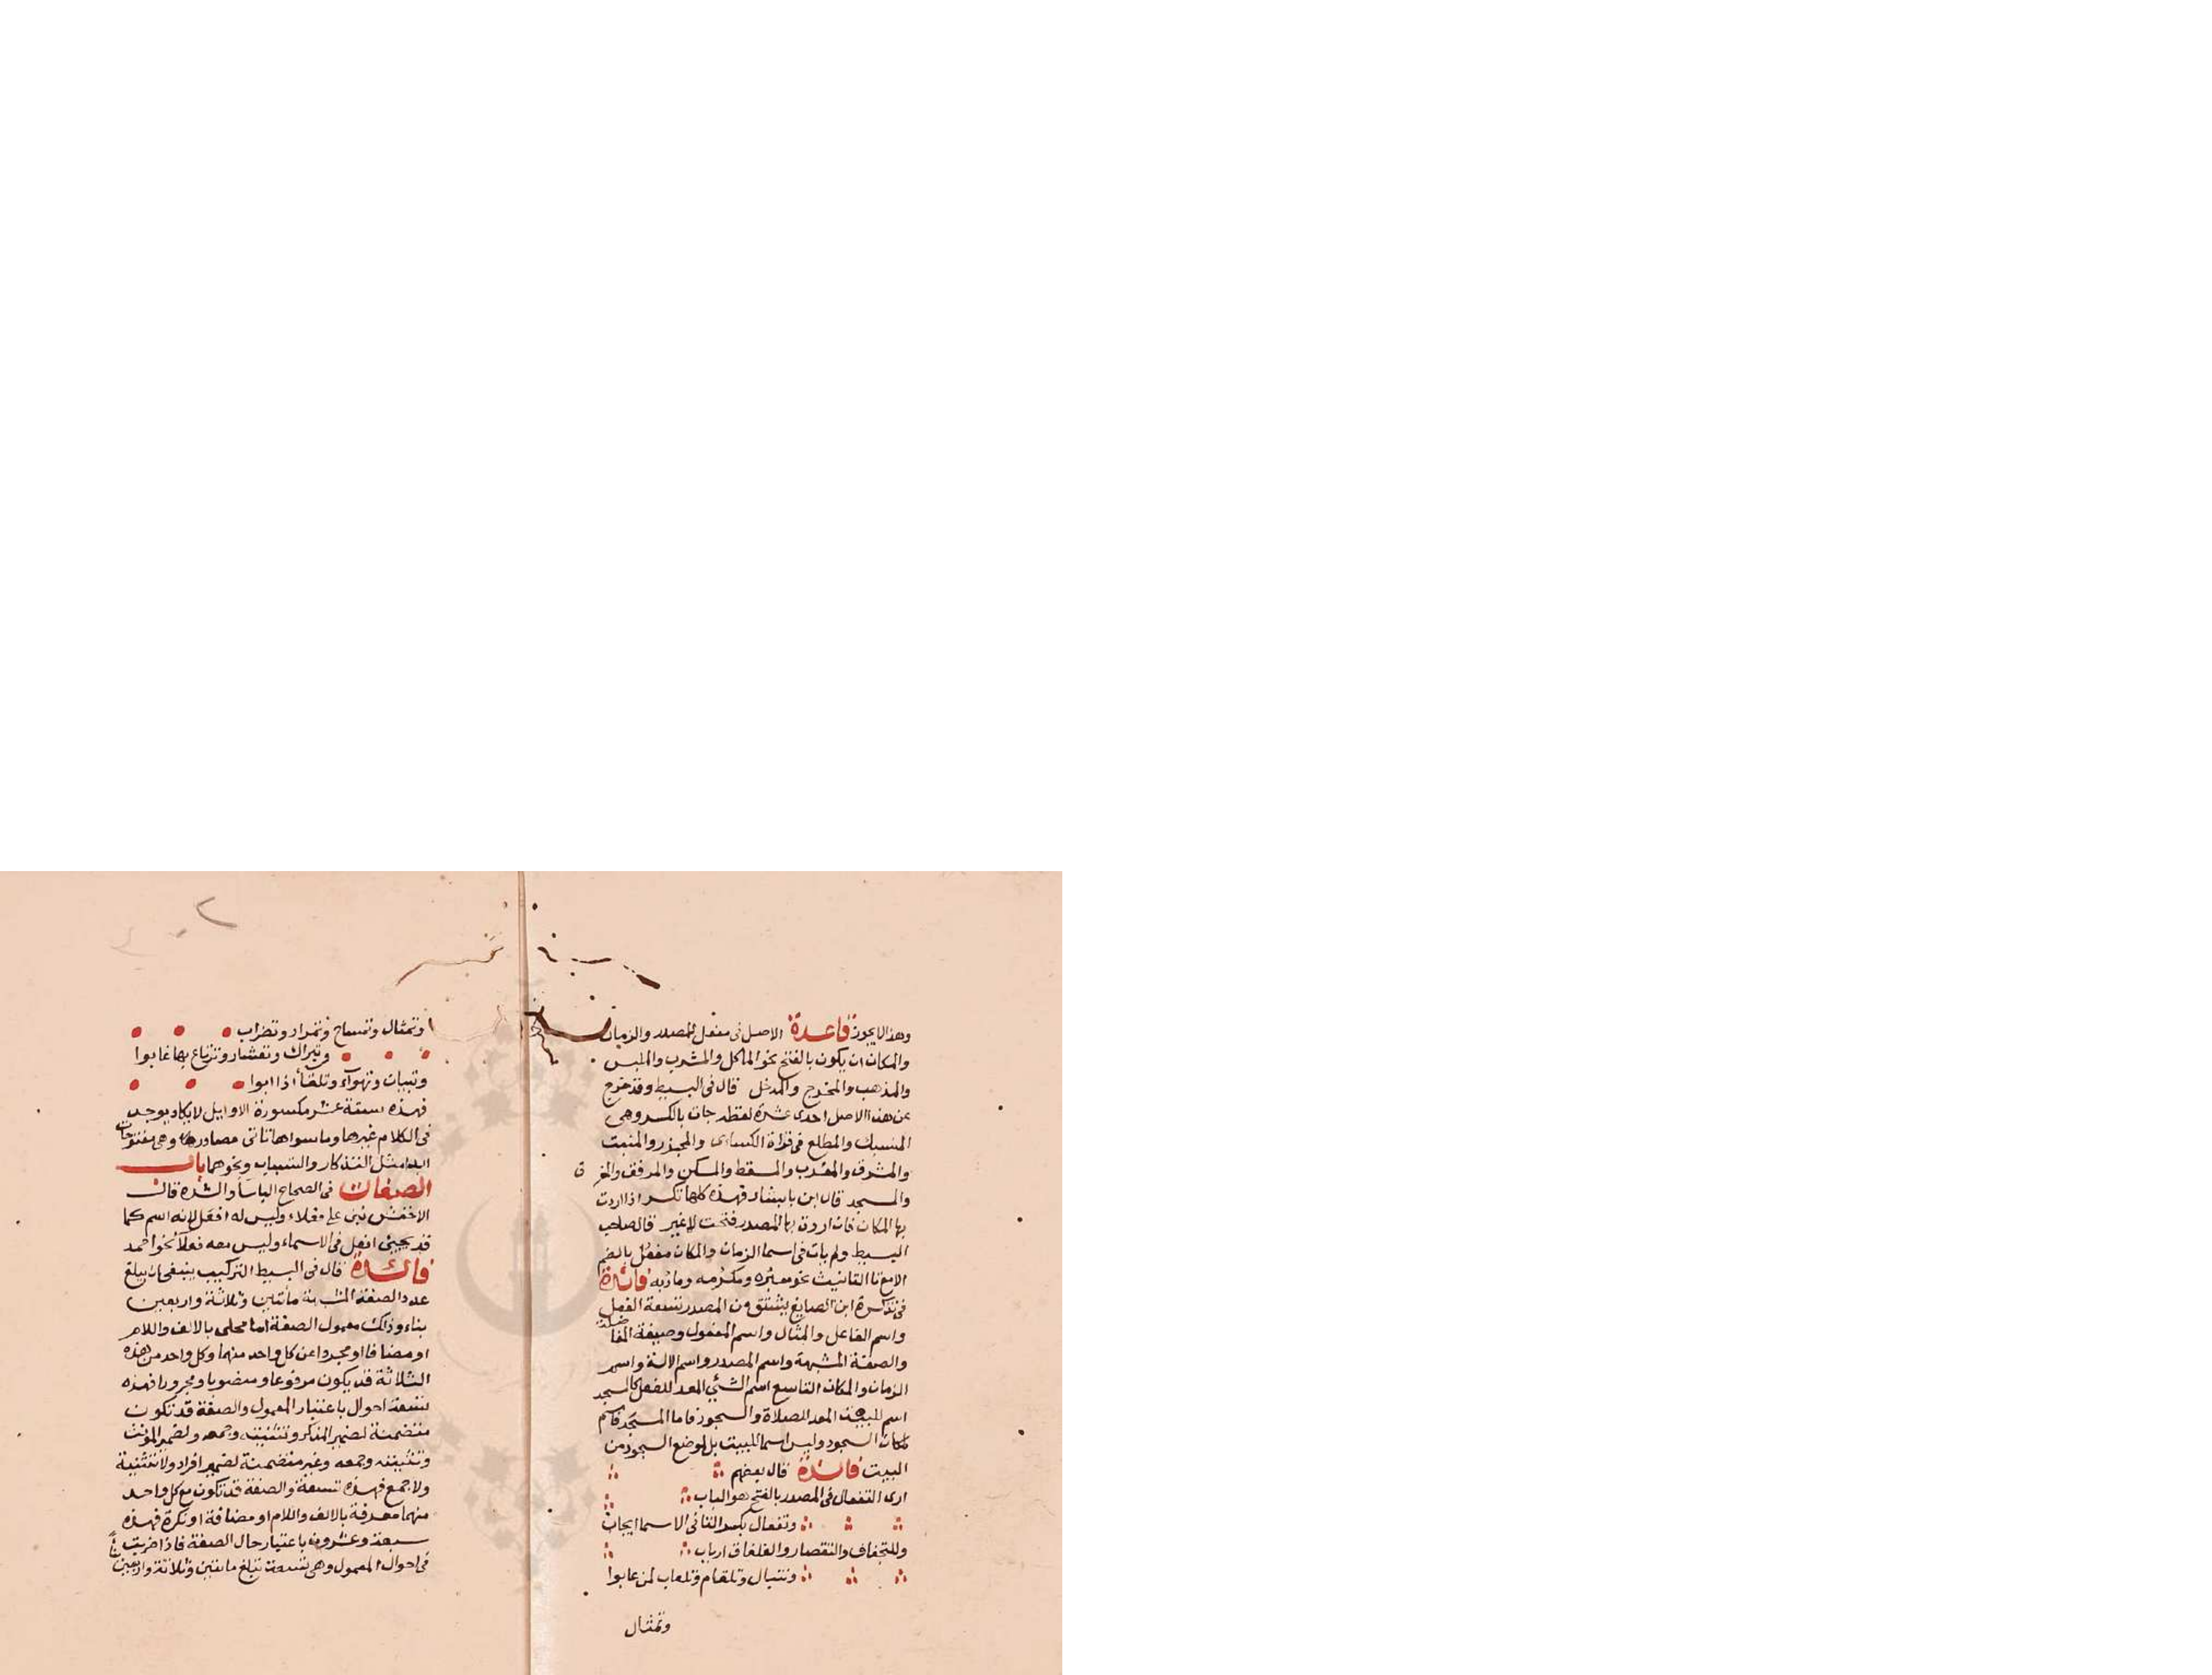 وهذا لا يجوز قاعدة الاصل في مفعل للمصدر والزمان
والمكان ان يكون بالفتح نحو المأكل والمشرب والملبس
والمذهب والمخرج والمدخل قال في البسيط وقد خرج
عن هذا الاصل احدى عشرة لفظة جات بالكسر وهي
المنسك والمطلع في قراة الكسائي والمجزر والمنبت
والمشرق والمغرب والمسقط والمسكن والمرفق والمفرق
والمسجد قال ابن بابشاد فهذه كلها تكسر اذا اردت
بها المكان فان اردت بها المصدر فتحت لا غير قال صاحب
البسيط ولم يات في اسما الزمان والمكان مفعل بالضم
الا مع تا التانيث نحو مقبره ومكرمه وماربه فائدة
في تذكرة ابن الصايغ يشتق من المصدر تسعة الفعل
واسم الفاعل والمثال واسم المفعول وصيغة المفاضلة
والصفة المشبهة واسم المصدر واسم الالة واسم
الزمان والمكان التاسع اسم الشئ المعد للفعل كالمسجد
اسم للبيت المعد للصلاة والسجود فاما المسجد فاسم
لمكان السجود وليس اسما للبيت بل لموضع السجود من
البيت فائدة قال بعضهم
ارى التفعال في المصدر بالفتح هو الباب
وتفعال بكسر التا في الاسما ايجاب
وللتجفاف والتقصار والفلفاق ارباب
وتنبال وتلقام وتلعاب لمن عابوا
وتمثال
وتمثال وتمساح وتمراد وتضراب
وتبراك وتعشار وترباع بها غابوا
وتبيان وتهواء وتلقا اذا ابوا
فهذه ستة عشر مكسورة الاوايل لا يكاد يوجد
في الكلام غيرها وما سواها تاتي مصادرها وهي مفتوحات
ابدا مثل التذكار والتسباب ونحوهما باب
الصفات في الصحاح الباسا والشدة قال
الاخفش بني على فعلاء وليس له افعل لانه اسم كما
قد يجيئ افعل في الاسماء وليس معه فعلا نحو احمد
فائدة قال في البسيط التركيب ينبغي ان يبلغ
عدد الصفة المشبهة مأتين وثلاثة واربعين
بناء وذلك معمول الصفة اما محلى بالالف واللام
او مضافا او مجردا عن كل واحد منهما وكل واحد من هذه
الثلاثة قد يكون مرفوعا ومنصوبا ومجرورا فهذه
تسعة احوال باعتبار المعمول والصفة قد تكون
متضمنة لضمير المذكر وتثنيته وجمعه ولضمير المؤنث
وتثنيته وجمعه وغير متضمنة لضمير افراد ولا تثنية
ولا جمع فهذه تسعة والصفة قد تكون مع كل واحد
منهما معرفة بالالف واللام او مضافة او نكرة فهذه
سبعة وعشرون باعتبار حال الصفة فاذا ضربت
في احوال المعمول وهي تسعة تبلغ مائتين وثلاثة واربعين